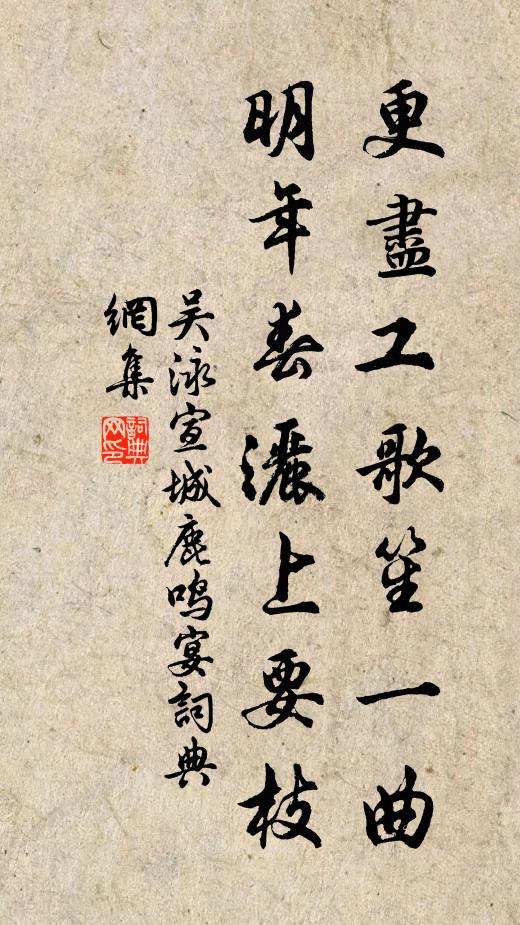 更盡工歌笙一曲
明年春灑上要枝
吴泳宣城鹿鸣宴詞典
網集
詞典網印